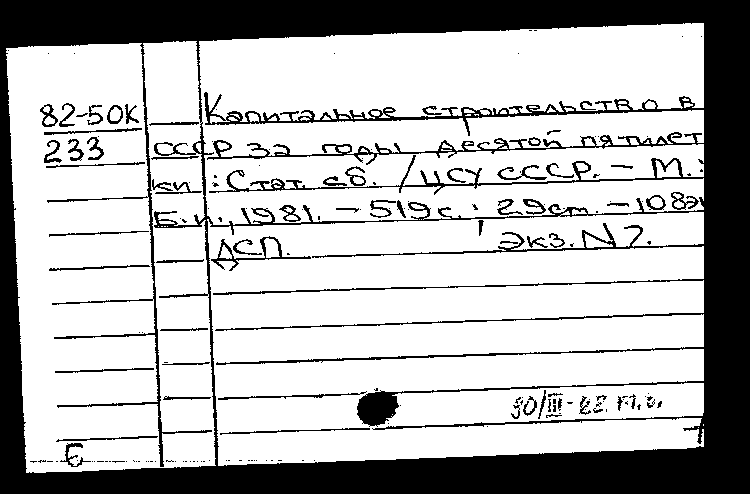 82-50К Капитальное строительство в
233 СССР за годы десятой пятилет
ки : Стат. сб. / ЦСУ СССР. – М. :
Б. и., 1981. – 519 с. ; 29 см. – 108 эк
ДСП. Экз. N 7.
30/III-82
6